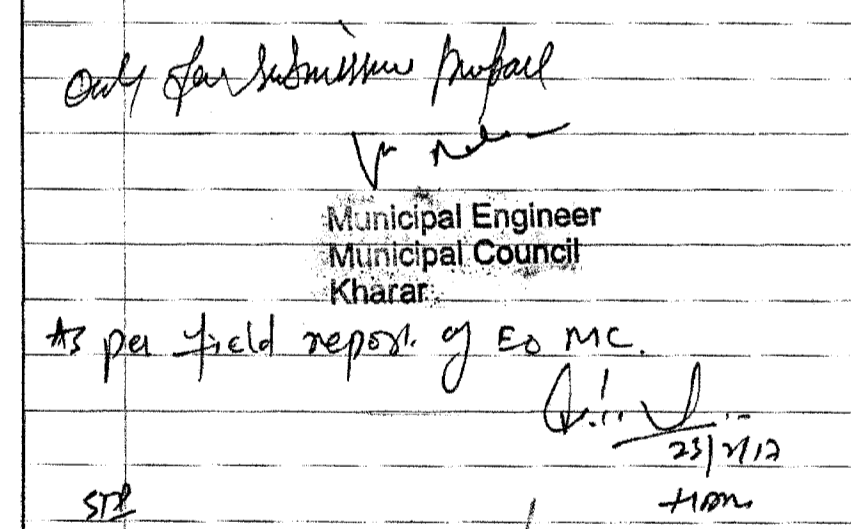 Only for submission purpose
Municipal Engineer
Municipal Council
Kharar
As per field report. of EO MC.
23/2/17
STP